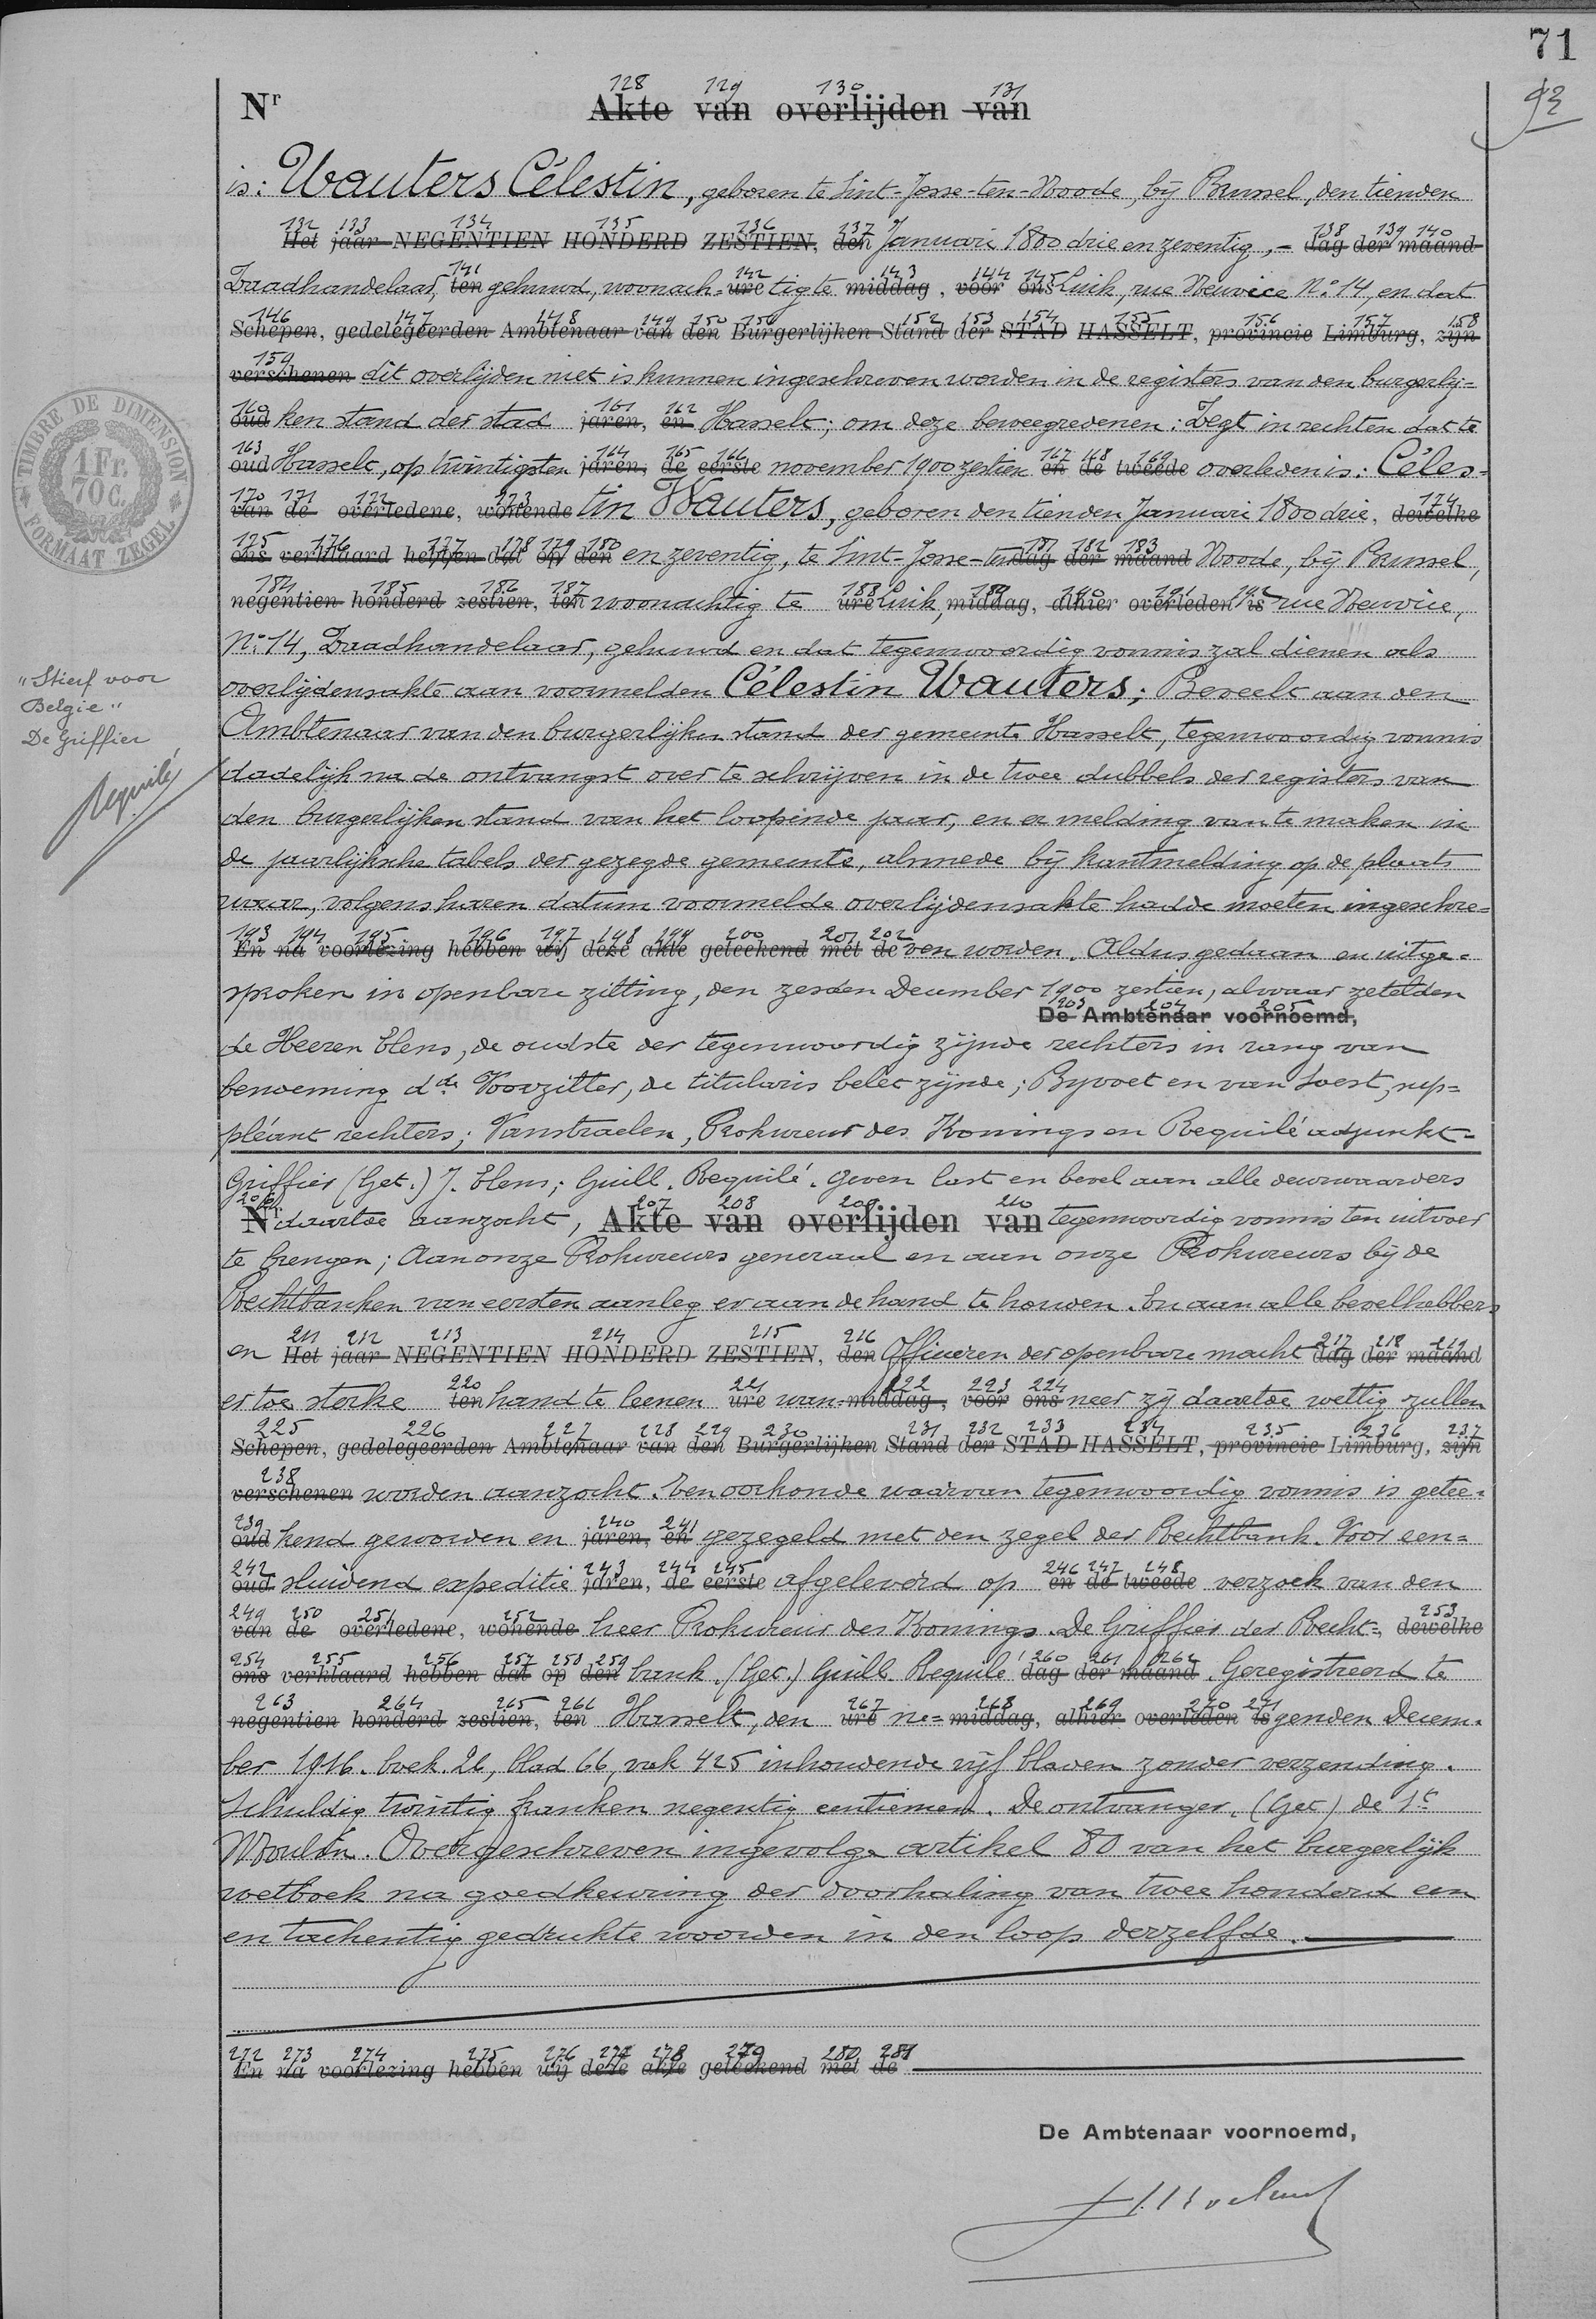 71
93
128 129 130 131
Nr Akte van overlijden van
is: Wauters Célestin, geboren te Sint-Josse-ten-Noode, bij Brussel, den tienden
132 133 134 135 136 137 138 139 140
Het jaar NEGENTIEN HONDERD ZESTIEN, den Januari 1800 drie en zeventig,- dag der maand
141 142 143 144 145
Zaadhandelaar, ten gehuwd, woonach- ure tig te middag, voor ons Luik, rue Neuvice N:o 14, en dat
146 147 148 149 150 151 152 153 154 155 156 157 158
Schepen, gedelegeerden Ambtenaar van den Burgerlijken Stand der STAD HASSELT, provincie Limburg, zijn
159
verschenen dit overlijden niet is kunnen ingeschreven worden in de registers van den burgerlij=
160 161 162
oud ken stand der stad jaren, en Hasselt; om deze beweegredenen: Zegt in rechten dat te
163 164 165 166 167 168 169
oud Hasselt, op twintigsten jaren, de eerste november 1900 zestien en de tweede overleden is: Céles-
170 171 172 173 174
van de overledene, wonende tin Wauters, geboren den tienden Januari 1800 drie, dewelke
175 176 177 178 179 180 181 182 183
ons verklaard hebben dat op den en zeventig, te Sint-Josse-ten dag der maand Noode, bij Brussel,
184 185 186 187 188 189 190 191 192
negentien honderd zestien, ten woonachtig te ure Luik, middag, alhier overleden is rue Neuvice,
N:o 14, Zaadhandelaar, gehuwd en dat tegenwoordig vonnis zal dienen als
overlijdensakte aan voormelden Célestin Wauters; Beveelt aan den
Ambtenaar van den burgerlijken stand der gemeente Hasselt, tegenwoordig vonnis
"Stierf voor
Belgie"
De Griffier
Requilé
dadelijk na de ontvangst over te schrijven in de twee dubbels der registers van
den burgerlijken stand van het loopende jaar, en er melding van te maken in
de jaarlijksche tabels der gezegde gemeente, alsmede bij kantmelding op de plaats
waar, volgens haren datum voormelde overlijdensakte hadde moeten ingeschre=
193 194 195 196 197 198 199 200 201 202
En na voorlezing hebben wij deze akte geteekend met de ven worden. Aldus gedaan en uitge=
sproken in openbare zitting, den zesden December 1900 zestien, alwaar zetelden
203 204 205
De Ambtenaar voornoemd,
de Heeren Elens, de oudste der tegenwoordig zijnde rechters in rang van
benoeming dde Voorzitter, de titularis belet zijnde; Byvoet en van Soest, sup=
pléant rechters; Vanstraelen, Prokureur des Konings en Requilé adjunkt-
Griffier (Get.) J. Elens; Guill. Requilé. Geven last en bevel aan alle deurwaarders
206 207 208 209 210
Nr daartoe aanzocht, Akte van overlijden van tegenwoordig vonnis ten uitvoer
te brengen; Aan onze Prokureurs generaal en aan onze Prokureurs bij de
Rechtbanken van eersten aanleg er aan de hand te houden. En aan alle bevelhebbers
211 212 213 214 215 216 217 218 219
en Het jaar NEGENTIEN HONDERD ZESTIEN, den Officieren der openbare macht dag der maand
220 221 222 223 224
er toe sterke ten hand te leenen ure wan- middag, voor ons neer zij daartoe wettig zullen
225 226 227 228 229 230 231 232 233 234 235 236 237
Schepen, gedelegeerden Ambtenaar van den Burgerlijken Stand der STAD HASSELT, provincie Limburg, zijn
238
verschenen worden aanzocht. Ten oorkonde waarvan tegenwoordig vonnis is getee=
239 240 241
oud kend geworden en jaren, en gezegeld met den zegel der Rechtbank. Voor een=
242 243 244 245 246 247 248
oud sluidend expeditie jaren, de eerste afgeleverd op en de tweede verzoek van den
249 250 251 252 253
van de overledene, wonende heer Prokureur des Konings. De Griffier der Recht=, dewelke
254 255 256 257 258 259 260 261 262
ons verklaard hebben dat op den bank. (Get.) Guill. Requilé dag der maand. Geregistreerd te
263 264 265 266 267 268 269 270 271
negentien honderd zestien, ten Hasselt, den ure ne= middag, alhier overleden is genden Decem=
ber 1916. boek 26, blad 66, vak 425 inhoudende vijf bladen zonder verzending.
Schuldig twintig franken negentig centiemen. De ontvanger, (Get) de
Moulin. Overgeschreven ingevolge artikel 80 van het burgerlijk
wetboek na goedkeuring der doorhaling van twee honderd een
en tachentig gedrukte woorden in den loop derzelfde.
272 273 274 275 276 277 278 279 280 281
En na voorlezing hebben wij deze akte geteekend met de
De Ambtenaar voornoemd,
TIMBRE DE DIMENSION
1 Fr.
70 C.
FORMAAT ZEGEL